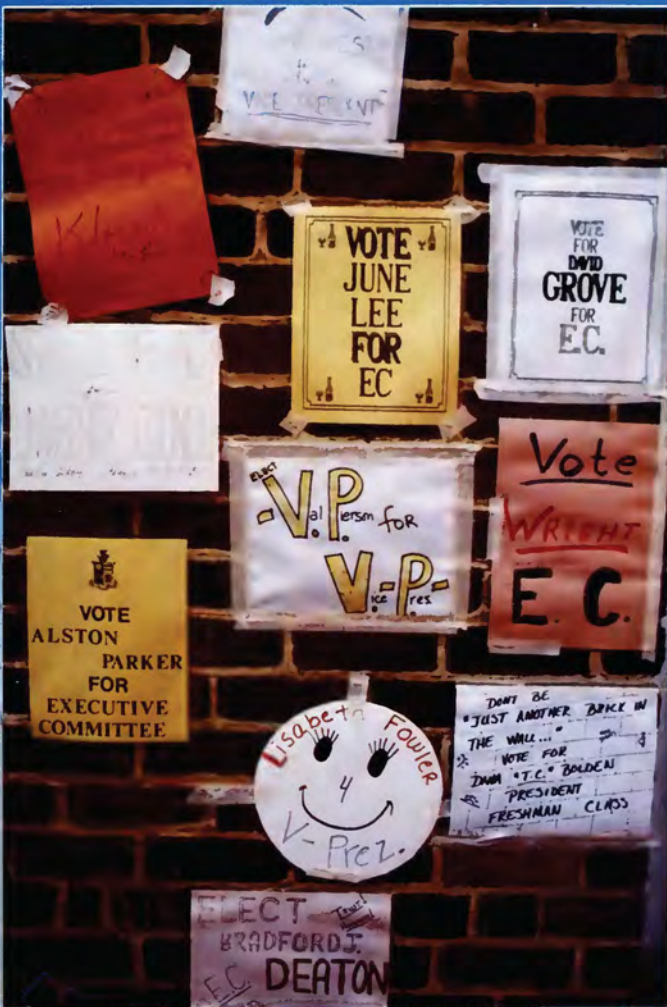 VICE PRESIDENT
VOTE
JUNE
LEE
FOR
EC
VOTE
FOR
DAVID
GROVE
FOR
E.C.
ELECT
-V.P.
al iersm FOR
V.-P.-
ice res.
Vote
WRIGHT
E.C.
VOTE
ALSTON
PARKER
FOR
EXECUTIVE
COMMITTEE
Lisabeth Fowler
4
V-Prez.
DONT BE
"JUST ANOTHER BRICK IN
THE WALL..."
VOTE FOR
DANA "T.C." BOLDEN
PRESIDENT
FRESHMAN CLASS
ELECT
BRADFORD J.
DEATON
E.C.